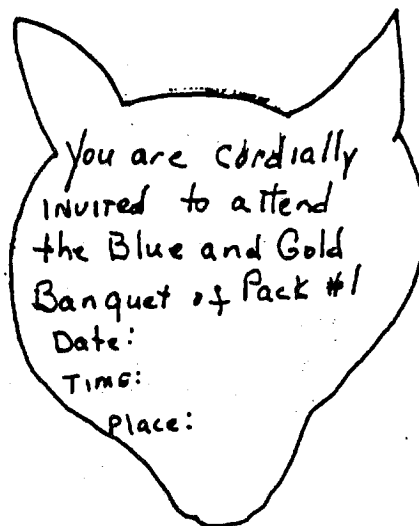 You are cordially
invited to attend
the Blue and Gold
Banquet of Pack #1
Date:
Time:
Place: